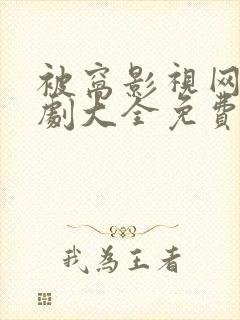 被窝影視网
劇大全免費
我為王者